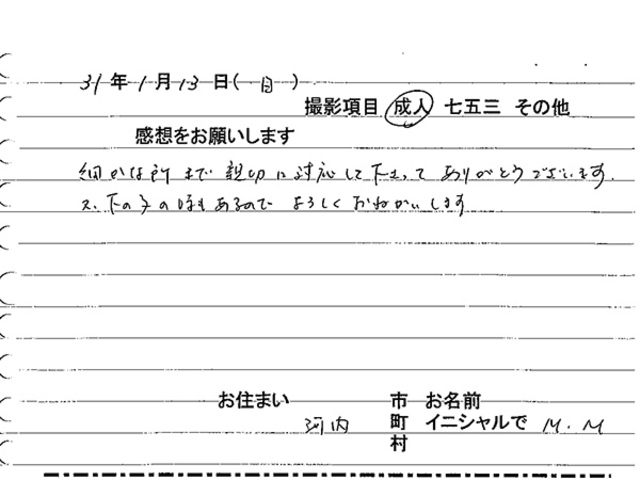 31年1月13日(日)
撮影項目 成人 七五三 その他
感想をお願いします
細かな所まで親切に対応して下さって ありがとうございます.
又、下の子の時もあるので よろしくおねがいします
お住まい 河内 市 町 村 お名前 イニシャルで M.M